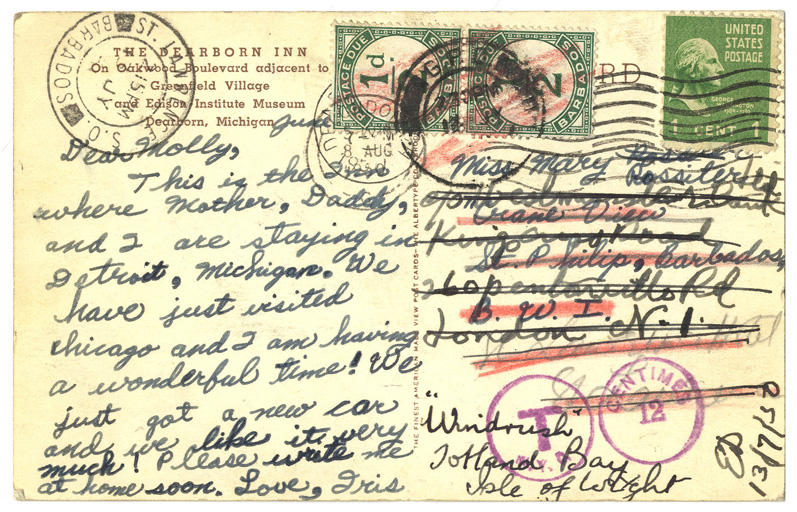 THE DEARBORN INN
On Oakwood Boulevard adjacent to
Greenfield Village
and Edison Institute Museum
Dearborn, Michigan
June
Dear Molly,
This is the Inn
where Mother, Daddy,
and I are staying in
Detroit, Michigan. We
have just visited
Chicago and I am having
a wonderful time! We
just got a new car
and we like it very
much! Please write me
at home soon. Love, Iris
BARBADOS
S.O.
JY
POSTAGE DUE
1d
BARBADOS
POSTAGE DUE
2
BARBADOS
8 AUG
RD
UNITED
STATES
POSTAGE
1 CENT 1
THE FINEST AMERICAN MADE VIEW POST CARDS—THE ALBERTYPE CO
Miss Mary
Rossiter
Crane View
St. Philip, Barbados,
260 Pentonville Rd
B. W. I.
London N.1.
T
CENTIMES
12
"Windrush"
Totland Bay
Isle of Wight
13/7/50